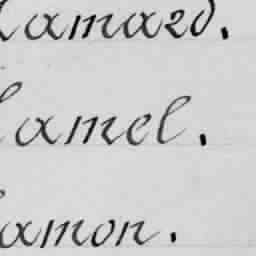 amard.
amel.
amon.